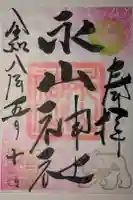 奉拝
永山神社
令和八年五月十一日